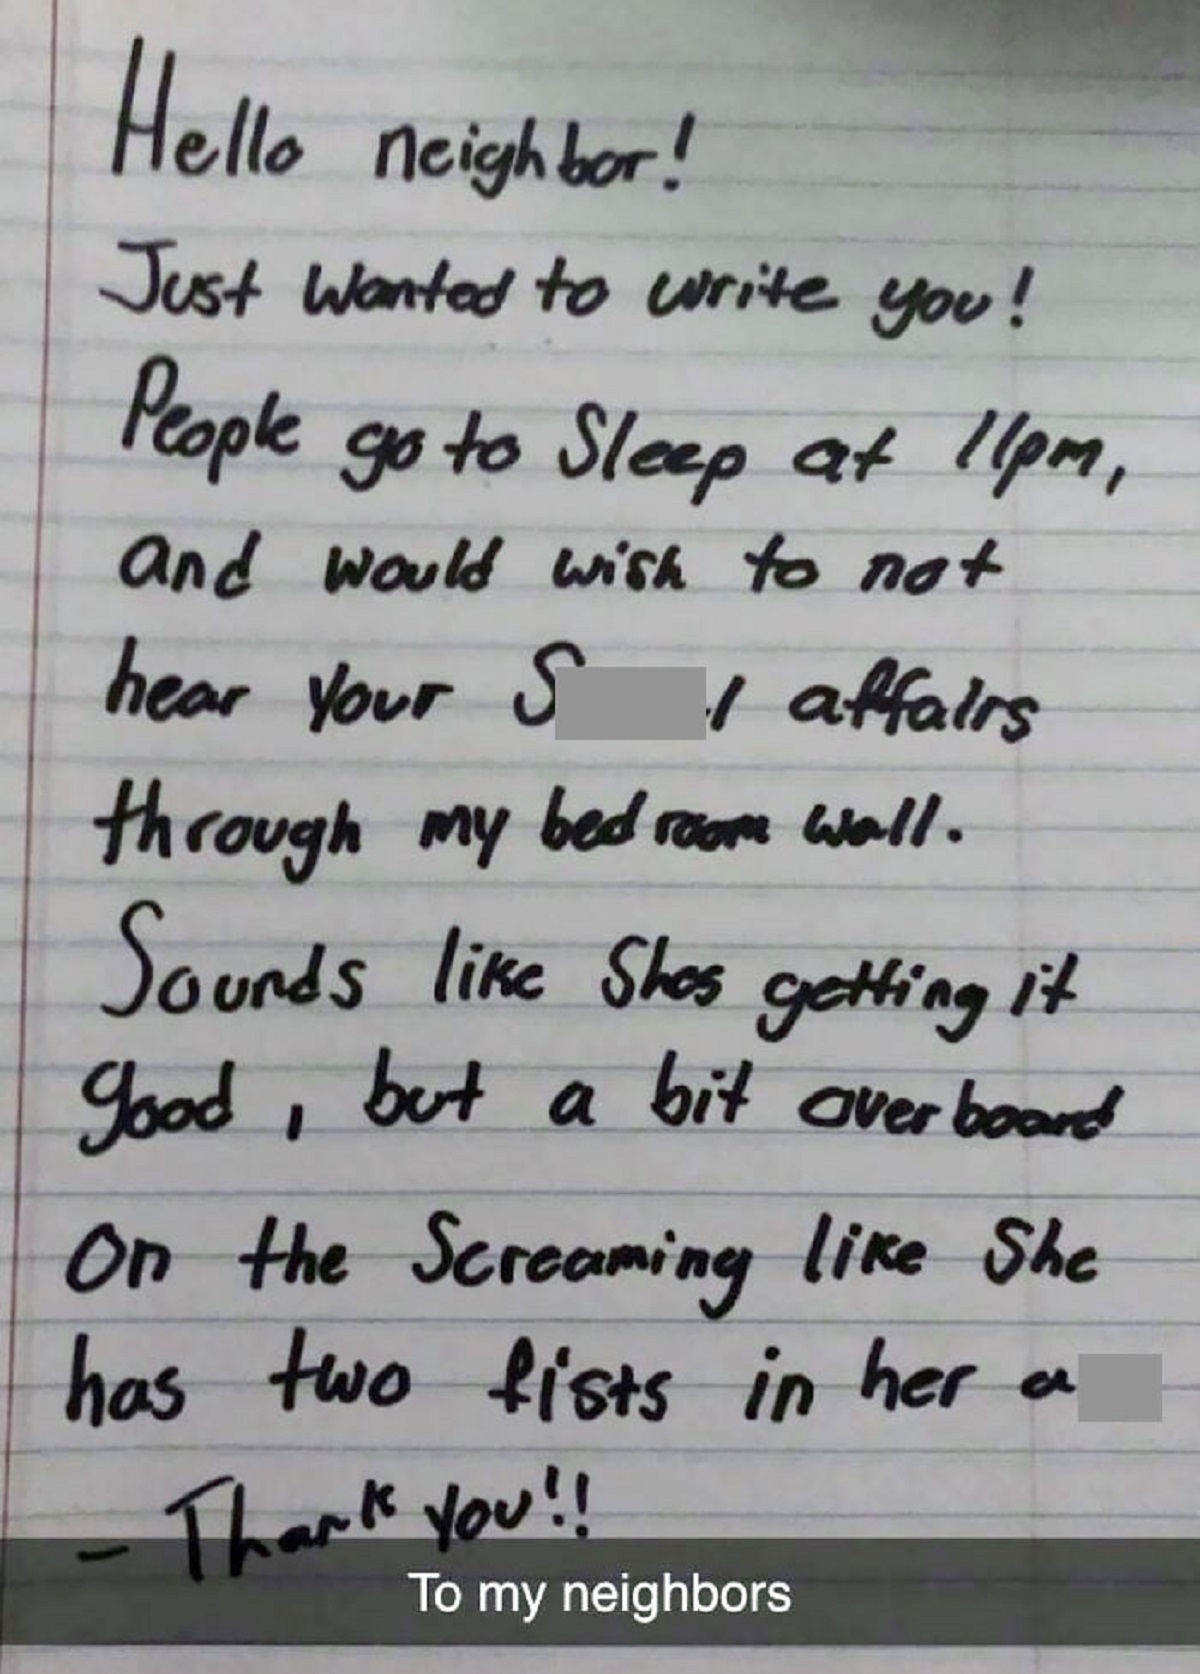 Hello neighbor!
Just wanted to write you!
People go to Sleep at 11pm,
and would wish to not
hear your S l affairs
through my bedroom wall.
Sounds like Shes getting it
good, but a bit overboard
On the Screaming like She
has two fists in her a
- Thank you!!
To my neighbors